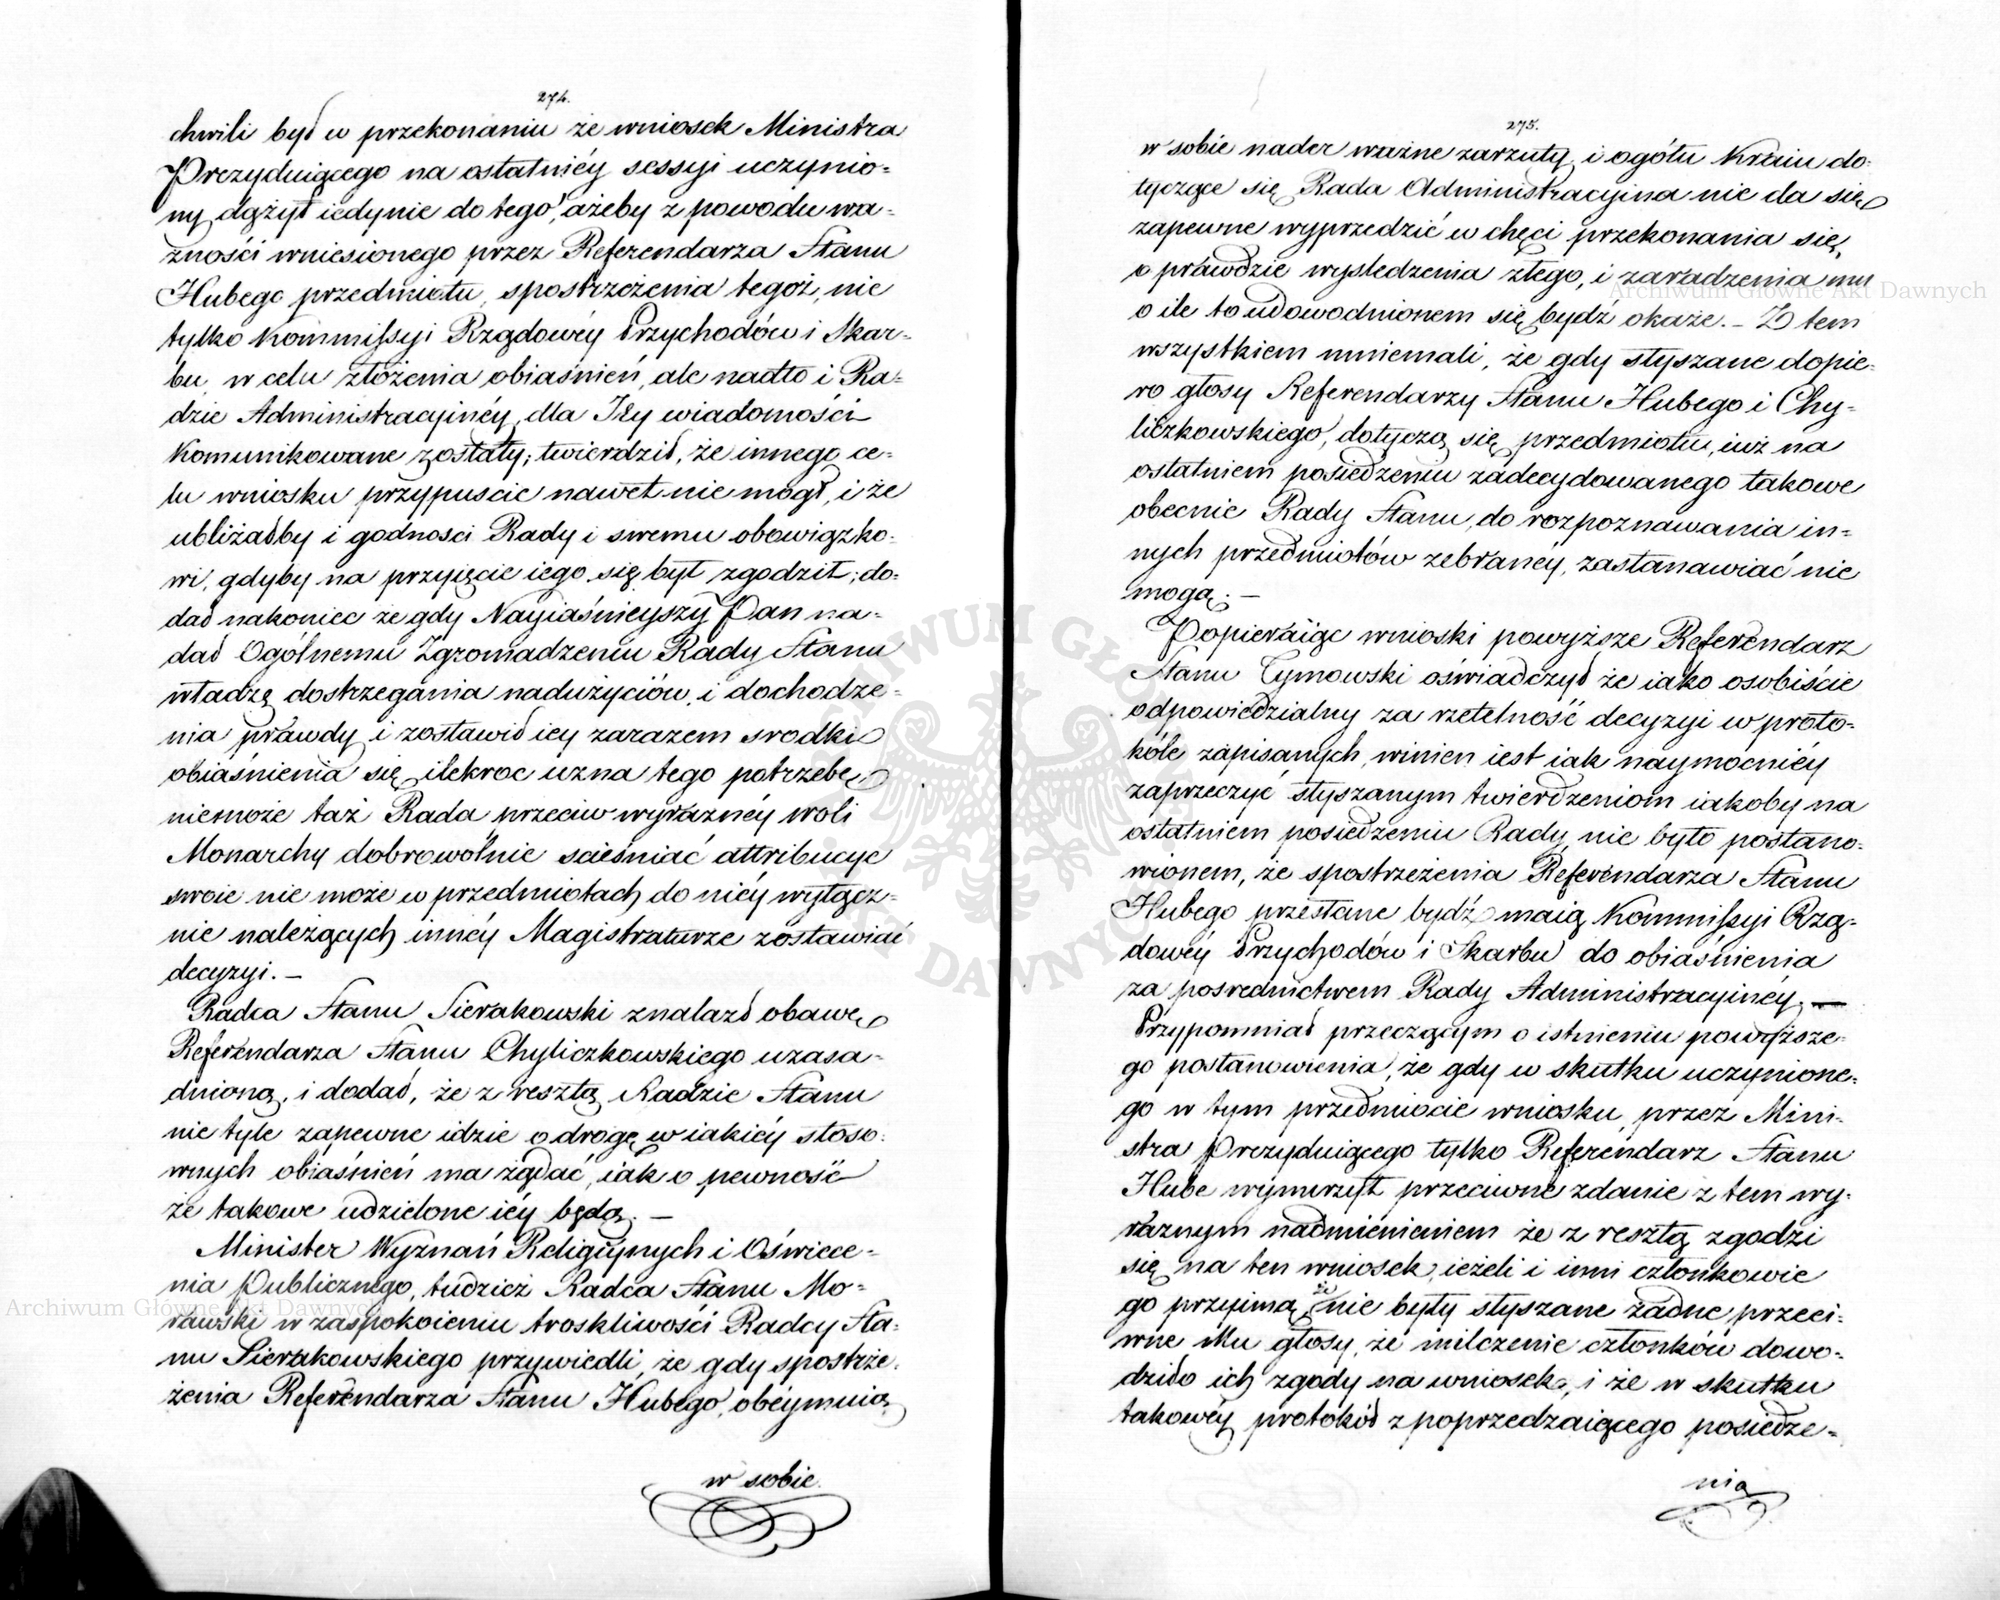 274.
chwili był w przekonaniu że wniosek Ministra
Prezyduiącego na ostatniéy sessyi uczynio-
ny dążył iedynie do tego, ażeby z powodu wa-
żności wniesionego przez Referendarza Stanu
Hubego przedmiotu, spostrzeżenia tegoż, nie
tylko Kommissyi Rządowéy Przychodów i Skar-
bu, w celu złożenia obiaśnień, ale nadto i Ra-
dzie Administracyinéy, dla Iéy wiadomości
Komunikowane zostały; twierdził, że innego ce-
lu wniosku przypuscic nawet nie mogł, i że
ubliżałby i godnosci Rady i swemu obowiązko-
wi, gdyby na przyięcie iego się był zgodził; do-
dał nakoniec że gdy Nayiaśnieyszy Pan na-
dał Ogólnemu Zgromadzeniu Rady Stanu
władzę dostrzegania nadużyciów, i dochodze-
nia prawdy i zostawił icy zarazem srodki
obiaśnienia się ilekroc uzna tego potrzebę,
niemoże taż Rada przeciw wyraznéy woli
Monarchy dobrowolnie scieśniać attribucye
swoie nie może w przedmiotach do niéy wyłącz-
nie należących innéy Magistraturze zostawiać
decyzyi. —
Radca Stanu Sierakowski znalazł obawę
Referendarza Stanu Chyliczkowskiego uzasa-
dnioną, i dodał, że z resztą Radzie Stanu
nie tyle zapewne idzie o drogę w iakiéy stoso-
wnych obiaśnień ma żądać, iak o pewność
że takowe udzielone iéy będą. —
Minister Wyznań Religiynych i Oświece-
nia Publicznego, tudzież Radca Stanu Mo-
rawski w zaspokoieniu troskliwości Radcy Sta-
nu Sierakowskiego przywiedli, że gdy spostrze-
żenia Referendarza Stanu Hubego, obeymuią
w sobie.
275.
w sobie nader ważne zarzuty, i ogółu Kraiu do-
tyczące się Rada Administracyina nie da się
zapewne wyprzedzić w chęci przekonania się
o prawdzie wysledzenia złego, i zaradzenia mu
o ile to udowodnionem się bydź okaże. — Z tem
wszystkiem mniemali, że gdy słyszane dopie-
ro głosy Referendarzy Stanu Hubego i Chy-
liczkowskiego, dotyczą się przedmiotu, iuż na
ostatniem posiedzeniu zadecydowanego takowe
obecnie Rady Stanu, do rozpoznawania in-
nych przedmiotów zebranéy, zastanawiać nie
mogą. —
Popieraiąc wnioski powyższe Referendarz
Stanu Tymowski oświadczył że iako osobiście
odpowiedzialny za rzetelność decyzyi w proto-
kóle zapisanych, winien iest iak naymocniéy
zaprzeczyć słyszanym twierdzeniom iakoby na
ostatniem posiedzeniu Rady nie było postano-
wionem, że spostrzeżenia Referendarza Stanu
Hubego przesłane bydź maią Kommissyi Rzą-
dowéy Przychodów i Skarbu do obiaśnienia
za posrednictwem Rady Administracyinéy. —
Przypomniał przeczącym o istnieniu powyższe-
go postanowienia, że gdy w skutku uczynione-
go w tym przedmiocie wniosku, przez Mini-
stra Prezyduiącego tylko Referendarz Stanu
Hube wynurzył przeciwne zdanie z tem wy-
raznym nadmienieniem że z resztą zgodzi
się na ten wniosek, ieżeli i inni członkowie
go przyimą że nie były słyszane żadne przeci-
wne Mu głosy, że milczenie członków dowo-
dziło ich zgody na wniosek, i że w skutku
takowéy protokół z poprzedzaiącego posiedze-
nia
Archiwum Główne Akt Dawnych
Archiwum Główne Akt Dawnych
ARCHIWUM GŁÓWNE AKT DAWNYCH